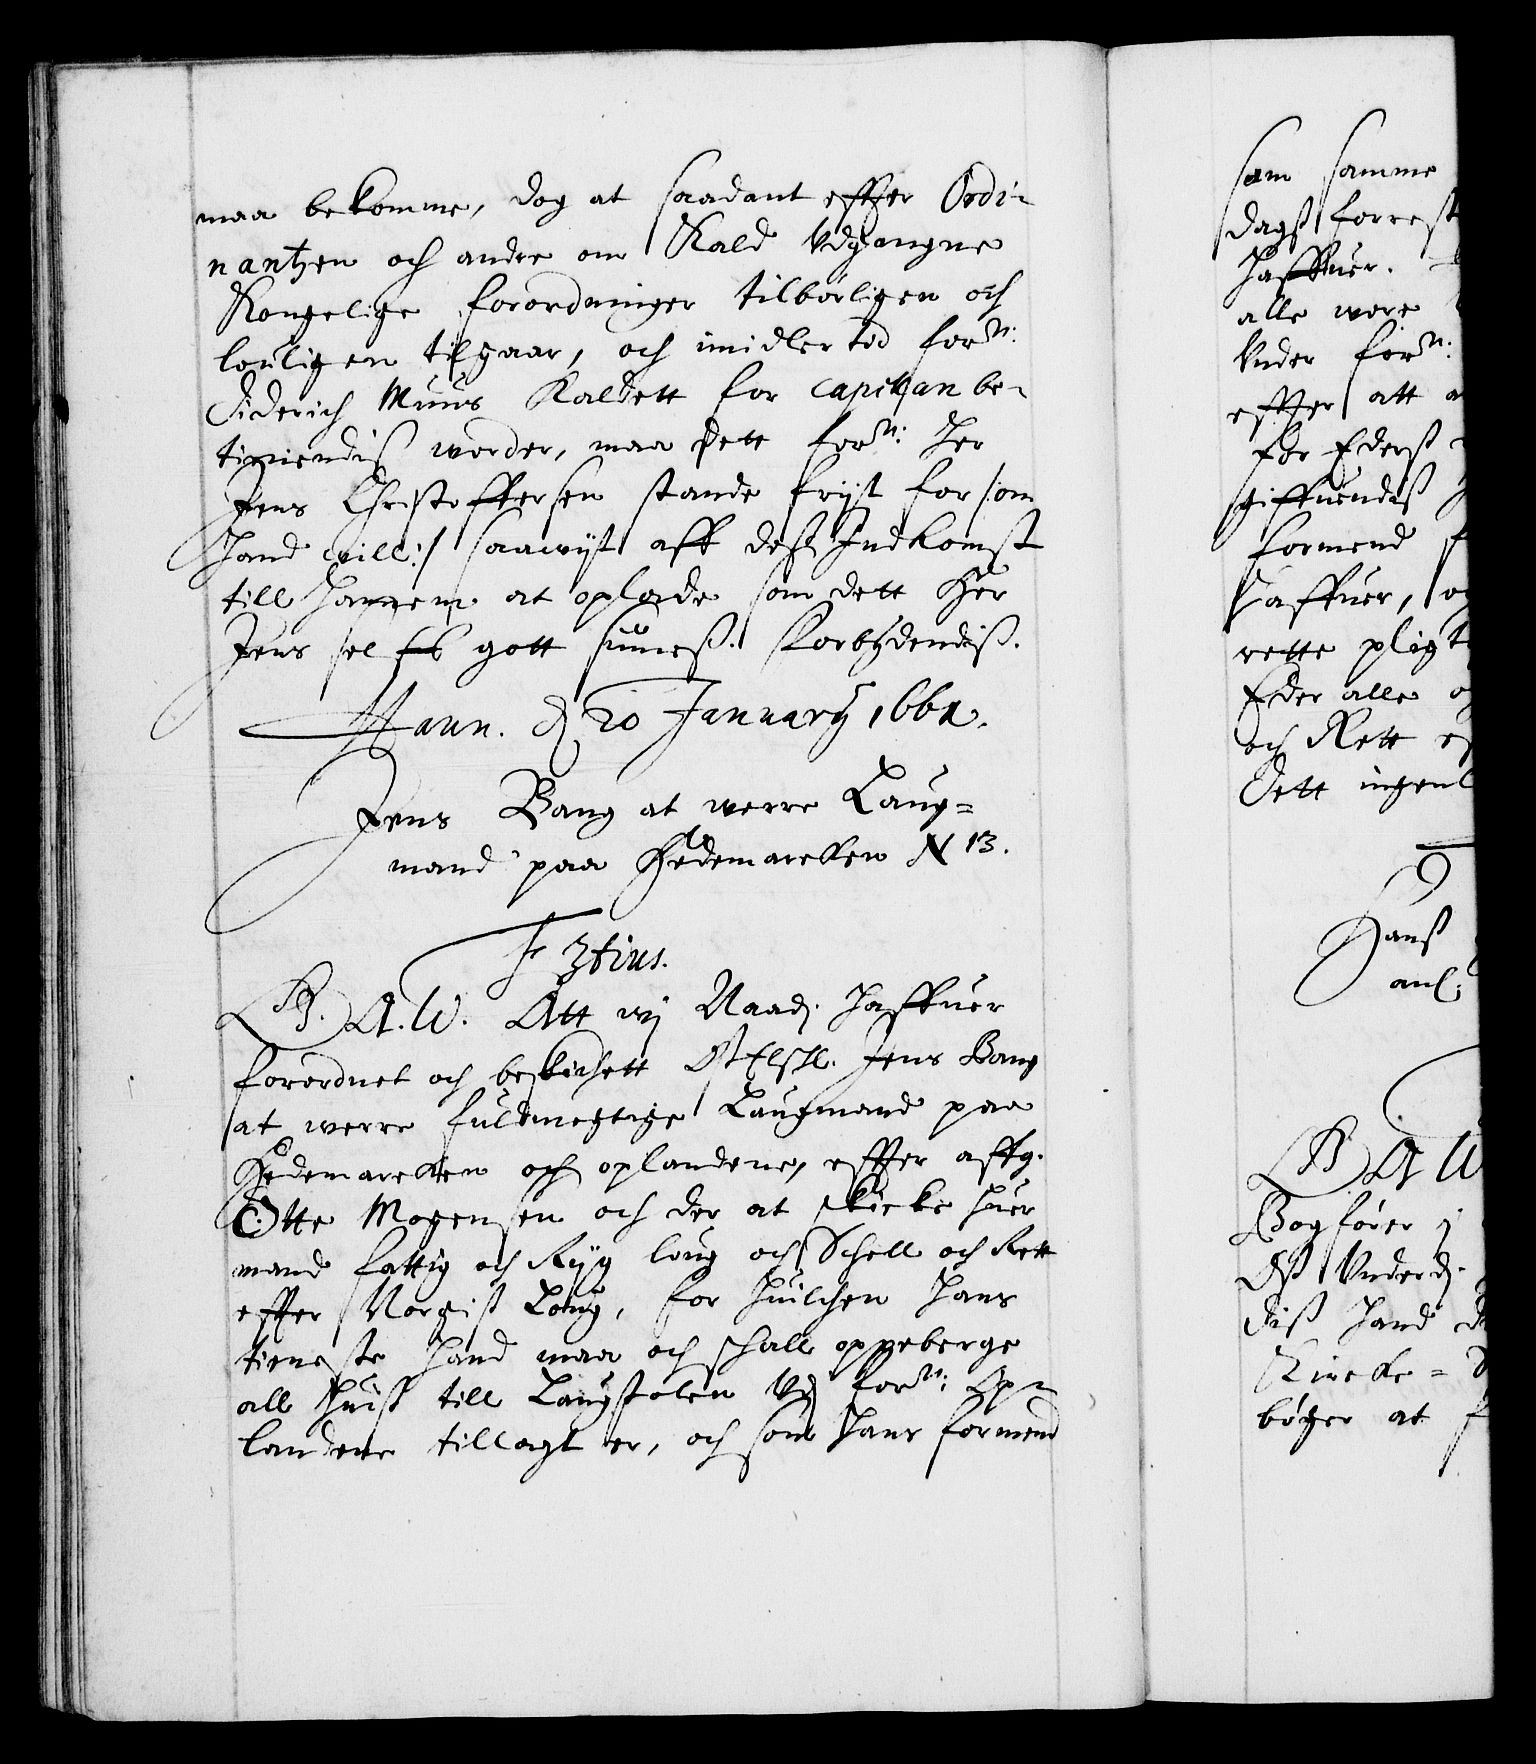 maa bekomme, dog at saadant effter Ordi-
nantzen och andre om Kald Udgangne
Kongelige forordninger tilbørligen och
louligen tilgaar, och imidlertid forn:
Diderich Muus Kaldett for capellan be-
tienendis worder, maa dett forn: Her
Jens Christoffersen stande frijt for som
hand will:/ saawijt aff dess Indkomst
till hannem at oplade som dett Her
Jens self gott siuness. Forbydendiss.
Hafn. d 20 January 1661.
Jens Bang at werre Laug-
mand paa Hedemarcken N 13.
F 3tius.
G. A. W. Att wj Naadj. haffuer
forordnet och beskichett Oss Elskl. Jens Bang
at werre fuldmegtige Laugmand paa
Hedemarcken och oplandene, effter affg.
Otte Mogensen och der at skicke huer
mand fattig och Rijg loug och Schell och Rett
effter Norgiss Loug, for huilchen hans
tieneste hand maa och schall oppeberge
all huiss till Laugstolen Udj forn: Op-
landene tillagt er, och som hans formend
som samme
dags forrest
haffuer.
alle were
Under forn:
effter att
forEderss
giffuendiss
formend
haffuer, og
rette pligt
Eder alle og
och Rett
Dett ingenl
Hanss
anl.
G A W
Bogfører j
Oss Underdj.
diss hand
Kircke-
bøger at